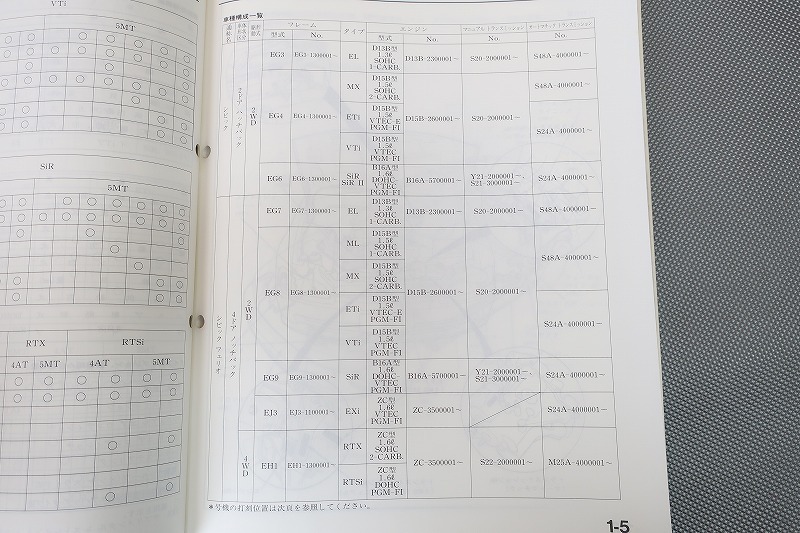 VTi
5MT
SiR
5MT
RTX
RTSi
4AT
5MT
4AT
5MT
車種構成一覧
通称名
車体形状区分
駆動形式
フレーム
タイプ
エンジン
マニュアルトランスミッション
オートマチックトランスミッション
型式
No.
型式
No.
No.
No.
シビック
2ドア ハッチバック
2WD
EG3
EG3-1300001~
EL
D13B型
1.3ℓ
SOHC
1-CARB.
D13B-2300001~
S20-2000001~
S48A-4000001~
EG4
EG4-1300001~
MX
D15B型
1.5ℓ
SOHC
2-CARB.
S48A-4000001~
ETi
D15B型
1.5ℓ
VTEC-E
PGM-FI
D15B-2600001~
S20-2000001~
S24A-4000001~
VTi
D15B型
1.5ℓ
VTEC
PGM-FI
EG6
EG6-1300001~
SiR
SiR II
B16A型
1.6ℓ
DOHC-
VTEC
PGM-FI
B16A-5700001~
Y21-2000001~、
S21-3000001~
S24A-4000001~
シビック フェリオ
4ドア ノッチバック
2WD
EG7
EG7-1300001~
EL
D13B型
1.3ℓ
SOHC
1-CARB.
D13B-2300001~
S20-2000001~
S48A-4000001~
EG8
EG8-1300001~
ML
D15B型
1.5ℓ
SOHC
1-CARB.
S48A-4000001~
MX
D15B型
1.5ℓ
SOHC
2-CARB.
D15B-2600001~
S20-2000001~
ETi
D15B型
1.5ℓ
VTEC-E
PGM-FI
S24A-4000001~
VTi
D15B型
1.5ℓ
VTEC
PGM-FI
EG9
EG9-1300001~
SiR
B16A型
1.6ℓ
DOHC-
VTEC
PGM-FI
B16A-5700001~
Y21-2000001~、
S21-3000001~
S24A-4000001~
EJ3
EJ3-1100001~
EXi
ZC型
1.6ℓ
VTEC
PGM-FI
ZC-3500001~
S24A-4000001~
4WD
EH1
EH1-1300001~
RTX
ZC型
1.6ℓ
SOHC
2-CARB.
ZC-3500001~
S22-2000001~
M25A-4000001~
RTSi
ZC型
1.6ℓ
DOHC
PGM-FI
*号機の打刻位置は次頁を参照してください。
1-5